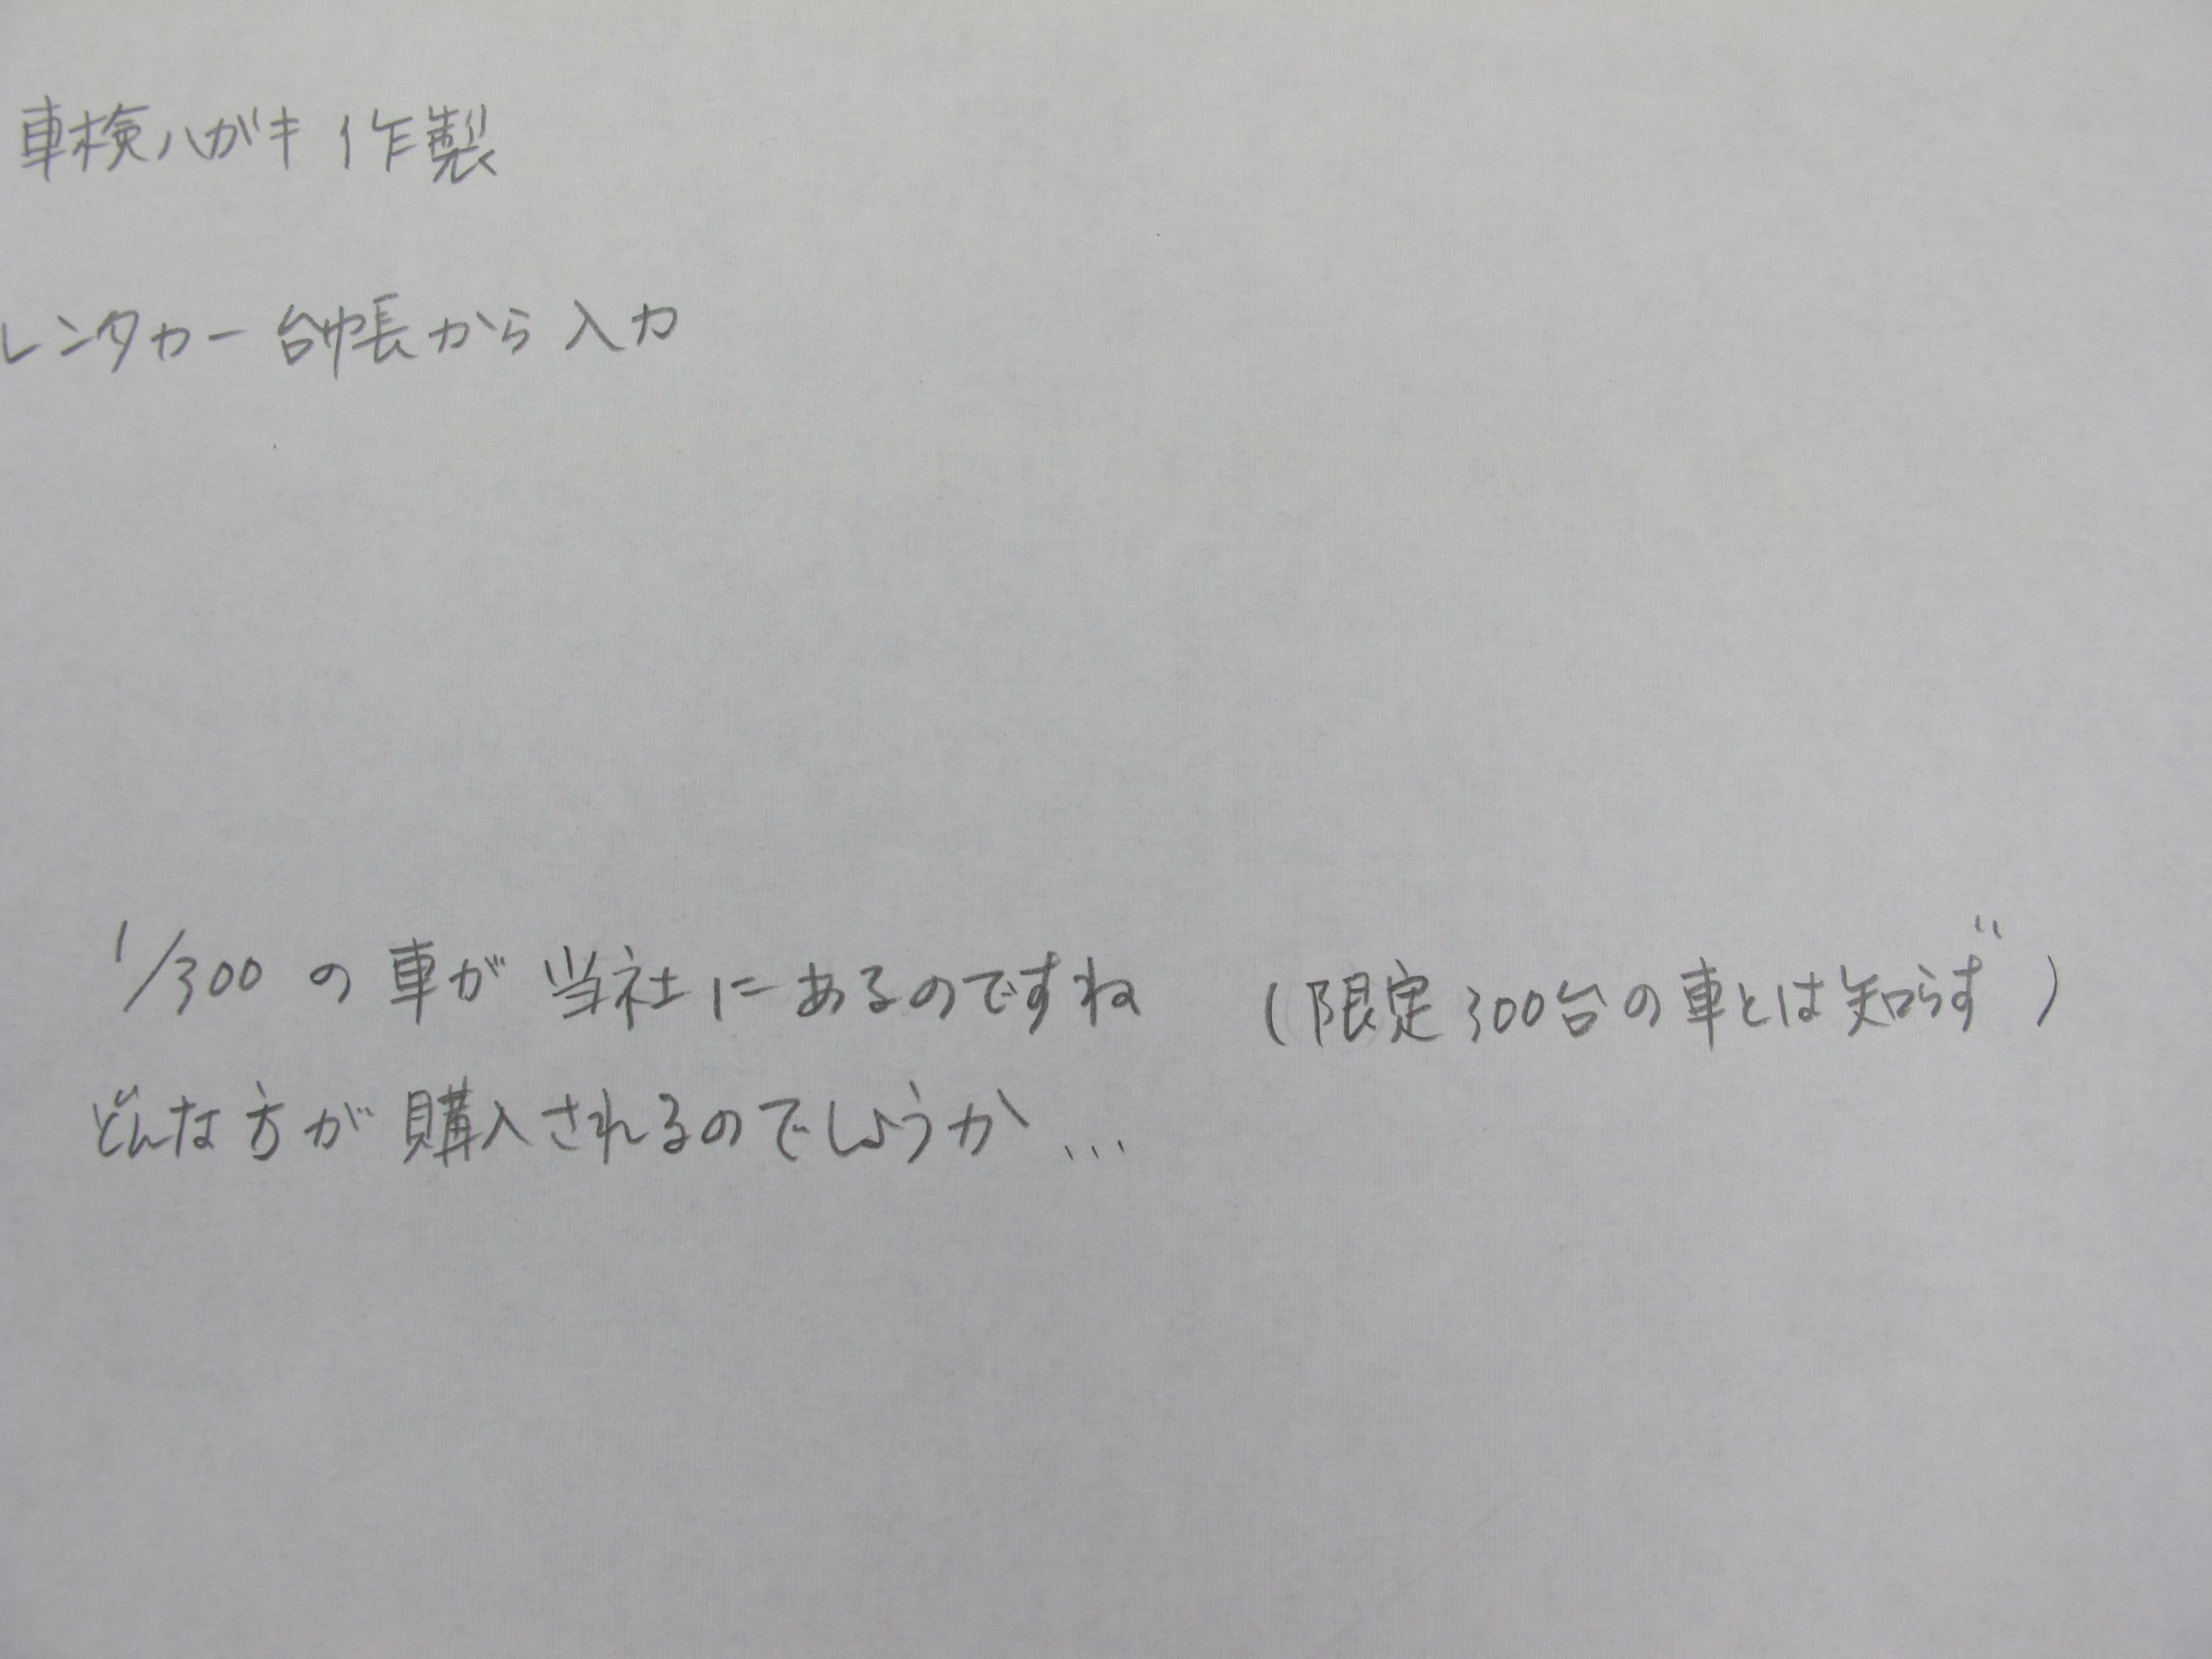 車検ハガキ作製
レンタカー台帳から入力
1/300の車が当社にあるのですね (限定300台の車とは知らず)
どんな方が購入されるのでしょうか...